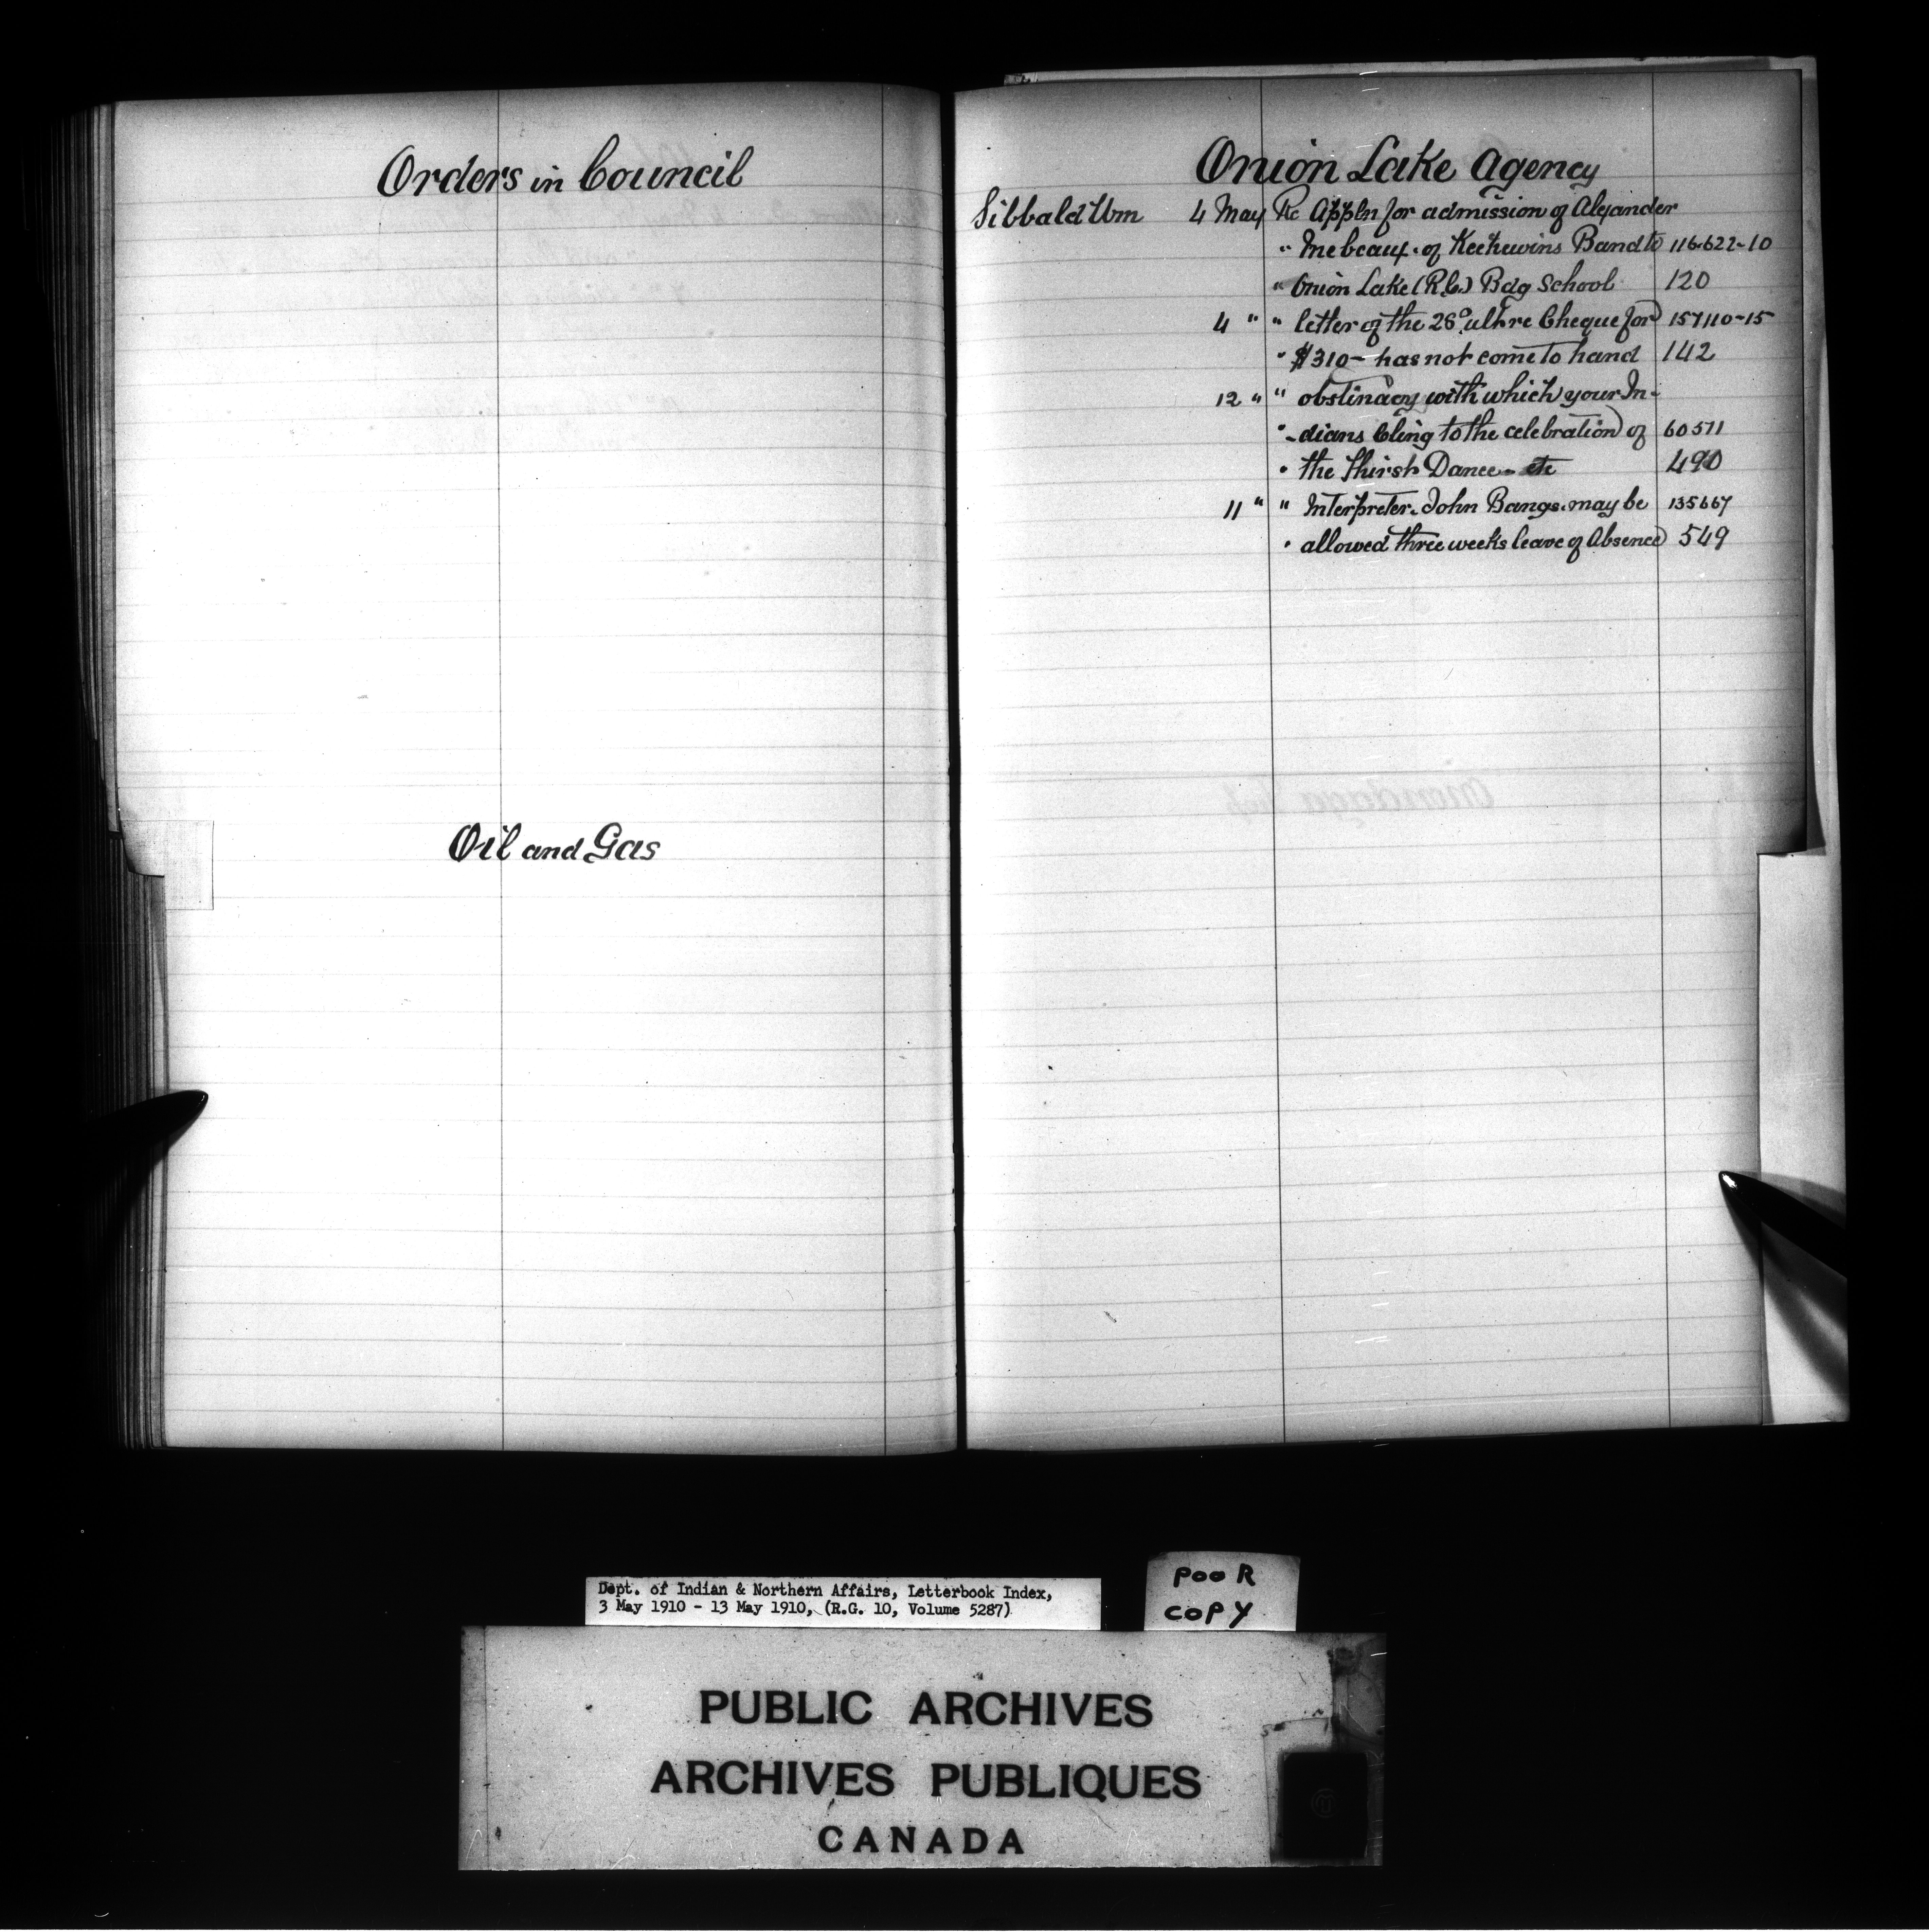 Orders in Council
Oil and Gas
Onion Lake Agency
Sibbald Wm 4 May Re Appln for admission of Alexander
" of Keehewins Band to 116.622-10
" Onion Lake (R.C.) Bdg School 120
4 " " letter of the 28° ult re Cheque for 157110-15
" $310- has not come to hand 142
12 " " obstinacy with which your In-
" -dians Cling to the celebration of 60511
" the Thirst Dance - etc 490
11 " " Interpreter. John Bangs. may be 135667
" allowed three weeks leave of Absence 549
Dept. of Indian & Northern Affairs, Letterbook Index,
3 May 1910 - 13 May 1910, (R.G. 10, Volume 5287)
POOR
COPY
PUBLIC ARCHIVES
ARCHIVES PUBLIQUES
CANADA